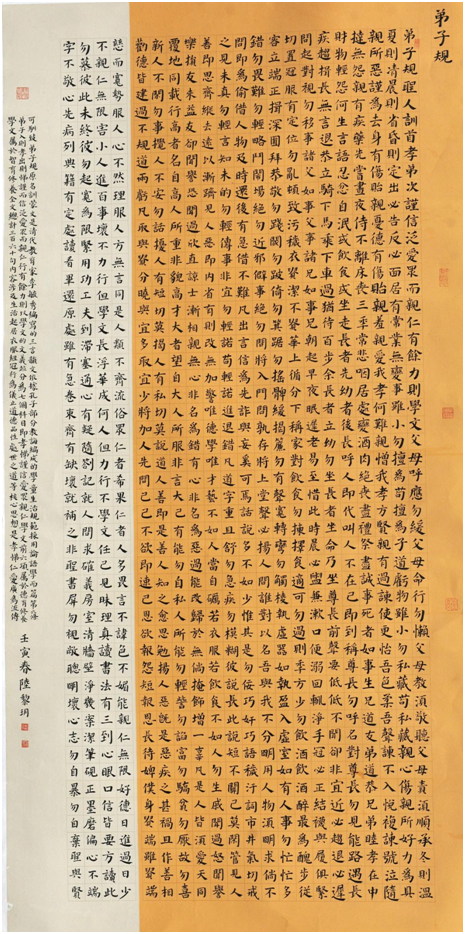 弟子規
弟子規聖人訓首孝弟次謹信泛愛眾而親仁有餘力則學文父母呼應勿緩父母命行勿懶父母教須敬聽父母責須順承冬則溫
夏則凊晨則省昏則定出必告反必面居有常業無變事雖小勿擅為苟擅為子道虧物雖小勿私藏苟私藏親心傷親所好力為具
親所惡謹為去身有傷貽親憂德有傷貽親羞親愛我孝何難親憎我孝方賢親有過諫使更怡吾色柔吾聲諫不入悅復諫號泣隨
撻無怨親有疾藥先嘗晝夜侍不離床喪三年常悲咽居處變酒肉絕喪盡禮祭盡誠事死者如事生兄道友弟道恭兄弟睦孝在中
財物輕怨何生言語忍忿自泯或飲食或坐走長者先幼者後長呼人即代叫人不在己即到稱尊長勿呼名對尊長勿見能路遇長
疾趨揖長無言退恭立騎下馬乘下車過猶待百步餘長者立幼勿坐長者坐命乃坐尊長前聲要低低不聞卻非宜近必趨退必遲
問起對視勿移事諸父如事父事諸兄如事兄朝起早夜眠遲老易至惜此時晨必盥兼漱口便溺回輒淨手冠必正結襪與履俱緊
切置冠服有定位勿亂頓致污穢衣貴潔不貴華上循分下稱家對飲食勿揀擇食適可勿過則年方少勿飲酒飲酒醉最為醜步從
容立端正揖深圓拜恭敬勿踐閾勿跛倚勿箕踞勿搖髀緩揭簾勿有聲寬轉彎勿觸棱執虛器如執盈入虛室如有人事勿忙忙多
錯勿畏難勿輕略鬥鬧場絕勿近邪僻事絕勿問將入門問孰存將上堂聲必揚人問誰對以名吾與我不分明用人物須明求倘不
問即為偷借人物及時還後有急借不難凡出言信為先詐與妄奚可焉話說多不如少惟其是勿佞巧奸巧語穢污詞市井氣切戒
之見未真勿輕言知未的勿輕傳事非宜勿輕諾苟輕諾進退錯凡道字重且舒勿急疾勿模糊彼說長此說短不關己莫閒管見人
善即思齊縱去遠以漸躋見人惡即內省有則改無加警唯德學唯才藝不如人當自礪若衣服若飲食不如人勿生戚聞過怒聞譽
樂損友來益友卻聞譽恐聞過欣直諒士漸相親無心非名為錯有心非名為惡過能改歸於無倘掩飾增一辜凡是人皆須愛天同
覆地同載行高者名自高人所重非貌高才大者望自大人所服非言大己有能勿自私人所能勿輕訾勿諂富勿驕貧勿厭故勿喜
新人不閒勿事攪人不安勿話擾人有短切莫揭人有私切莫說道人善即是善人知之愈思勉揚人惡既是惡疾之甚禍且作善相
勸德皆建過不規道兩虧凡取與貴分曉與宜多取宜少將加人先問己己不欲即速已恩欲報怨短報恩長待婢僕身貴端雖貴端
慈而寬勢服人心不然理服人方無言同是人類不齊流俗眾仁者希果仁者人多畏言不諱色不媚能親仁無限好德日進過日少
不親仁無限害小人進百事壞不力行但學文長浮華成何人但力行不學文任己見昧理真讀書法有三到心眼口信皆要方讀此
勿慕彼此未終彼勿起寬為限緊用功工夫到滯塞通心有疑隨劄記就人問求確義房室清牆壁淨几案潔筆硯正墨磨偏心不端
字不敬心先病列典籍有定處讀看畢還原處雖有急卷束齊有缺壞就補之非聖書屏勿視蔽聰明壞心志勿自暴勿自棄聖與賢
可馴致弟子規原名訓蒙文是清代教育家李毓秀編寫的三言韻文依據孔子部分教論編成的學童生活規範採用論語學而篇第六條
弟子入則孝出則悌謹而信泛愛眾而親仁行有餘力則以學文的文義並分為七個科目即孝悌謹信愛眾親仁學文前六項屬於德育修養
學文屬於智育修養全文總計三百六十句內容涉及生活起居衣服紐冠行為儀止道德品性處世之道等核心思想是孝悌仁愛廣為流傳
壬寅春陸黎玥